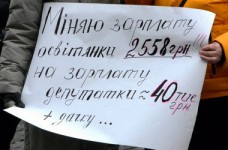 Міняю зарплату
освітянки 2558грн!!!
на зарплату
депутатки ≈ 40 тис
грн
+ дачу...